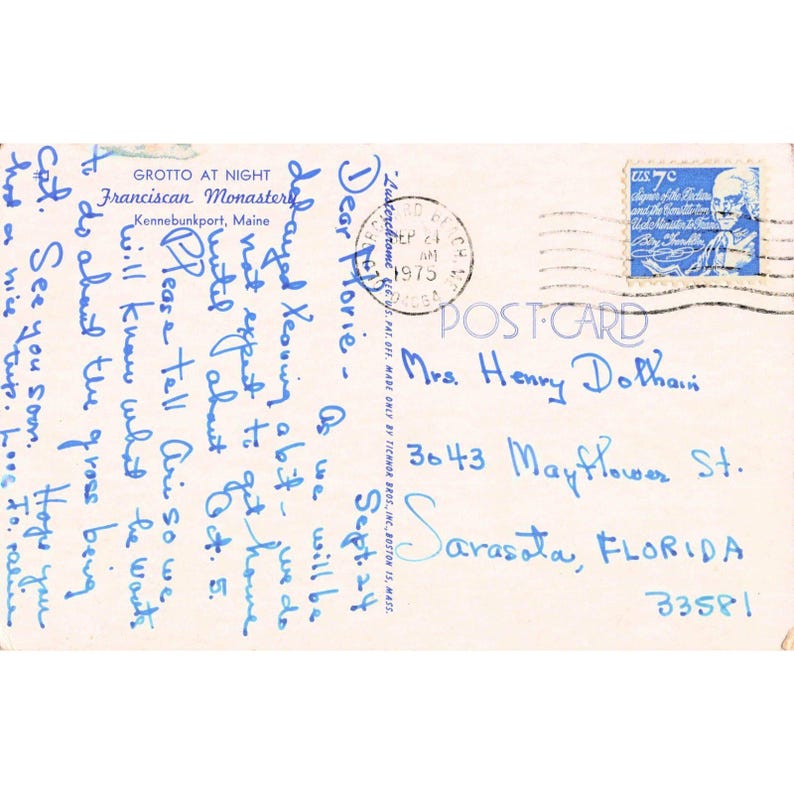 GROTTO AT NIGHT
Franciscan Monastery
Kennebunkport, Maine
Sept. 24
Dear Florie - As we will be
delayed leaving a bit - we do
not expect to get home
until about Oct. 5.
Please tell so we
will know what he wants
to do about the grass being
cut. See you soon. Hope you
had a nice trip. Love to
"Lusterchrome" REG. U.S. PAT. OFF. MADE ONLY BY TICHNOR BROS., INC., BOSTON 15, MASS.
ORCHARD BEACH, ME.
SEP 24
AM
1975
04064
U.S. 7c
Signer of the Declara
and the Constitution
U.S. Minister to France
Benj Franklin
POST-CARD
Mrs. Henry Dolhain
3043 Mayflower St.
Sarasota, FLORIDA
33581